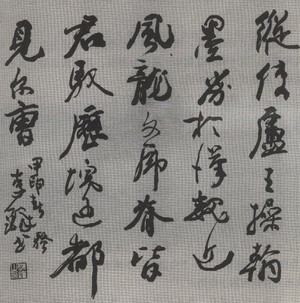 縱使盧王操翰
墨劣於漢魏近
風龍文虎脊皆
君馭歷塊過都
見尔曹
甲申新
李 书